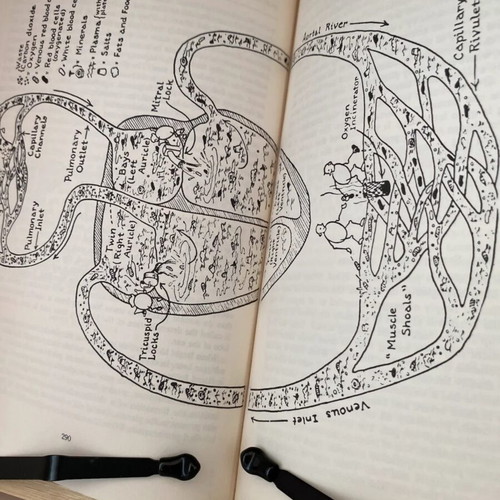 Waste
Carbon dioxide
Oxygen
Venous red blood cells
Red blood cells
(oxygenated)
White blood cells
Minerals
Plasma (with
Salts
Fats and Foo
Mitral
Lock
Pulmonary
Outlet
Capillary
Channels
Pulmonary
Inlet
(Left
Auricle)
Twin
(Right
Auricle)
Tricuspid
Locks
290
Aortal River
Capillary
Rivulet
Oxygen
incinerator
"Muscle
Shoals"
Venous Inlet